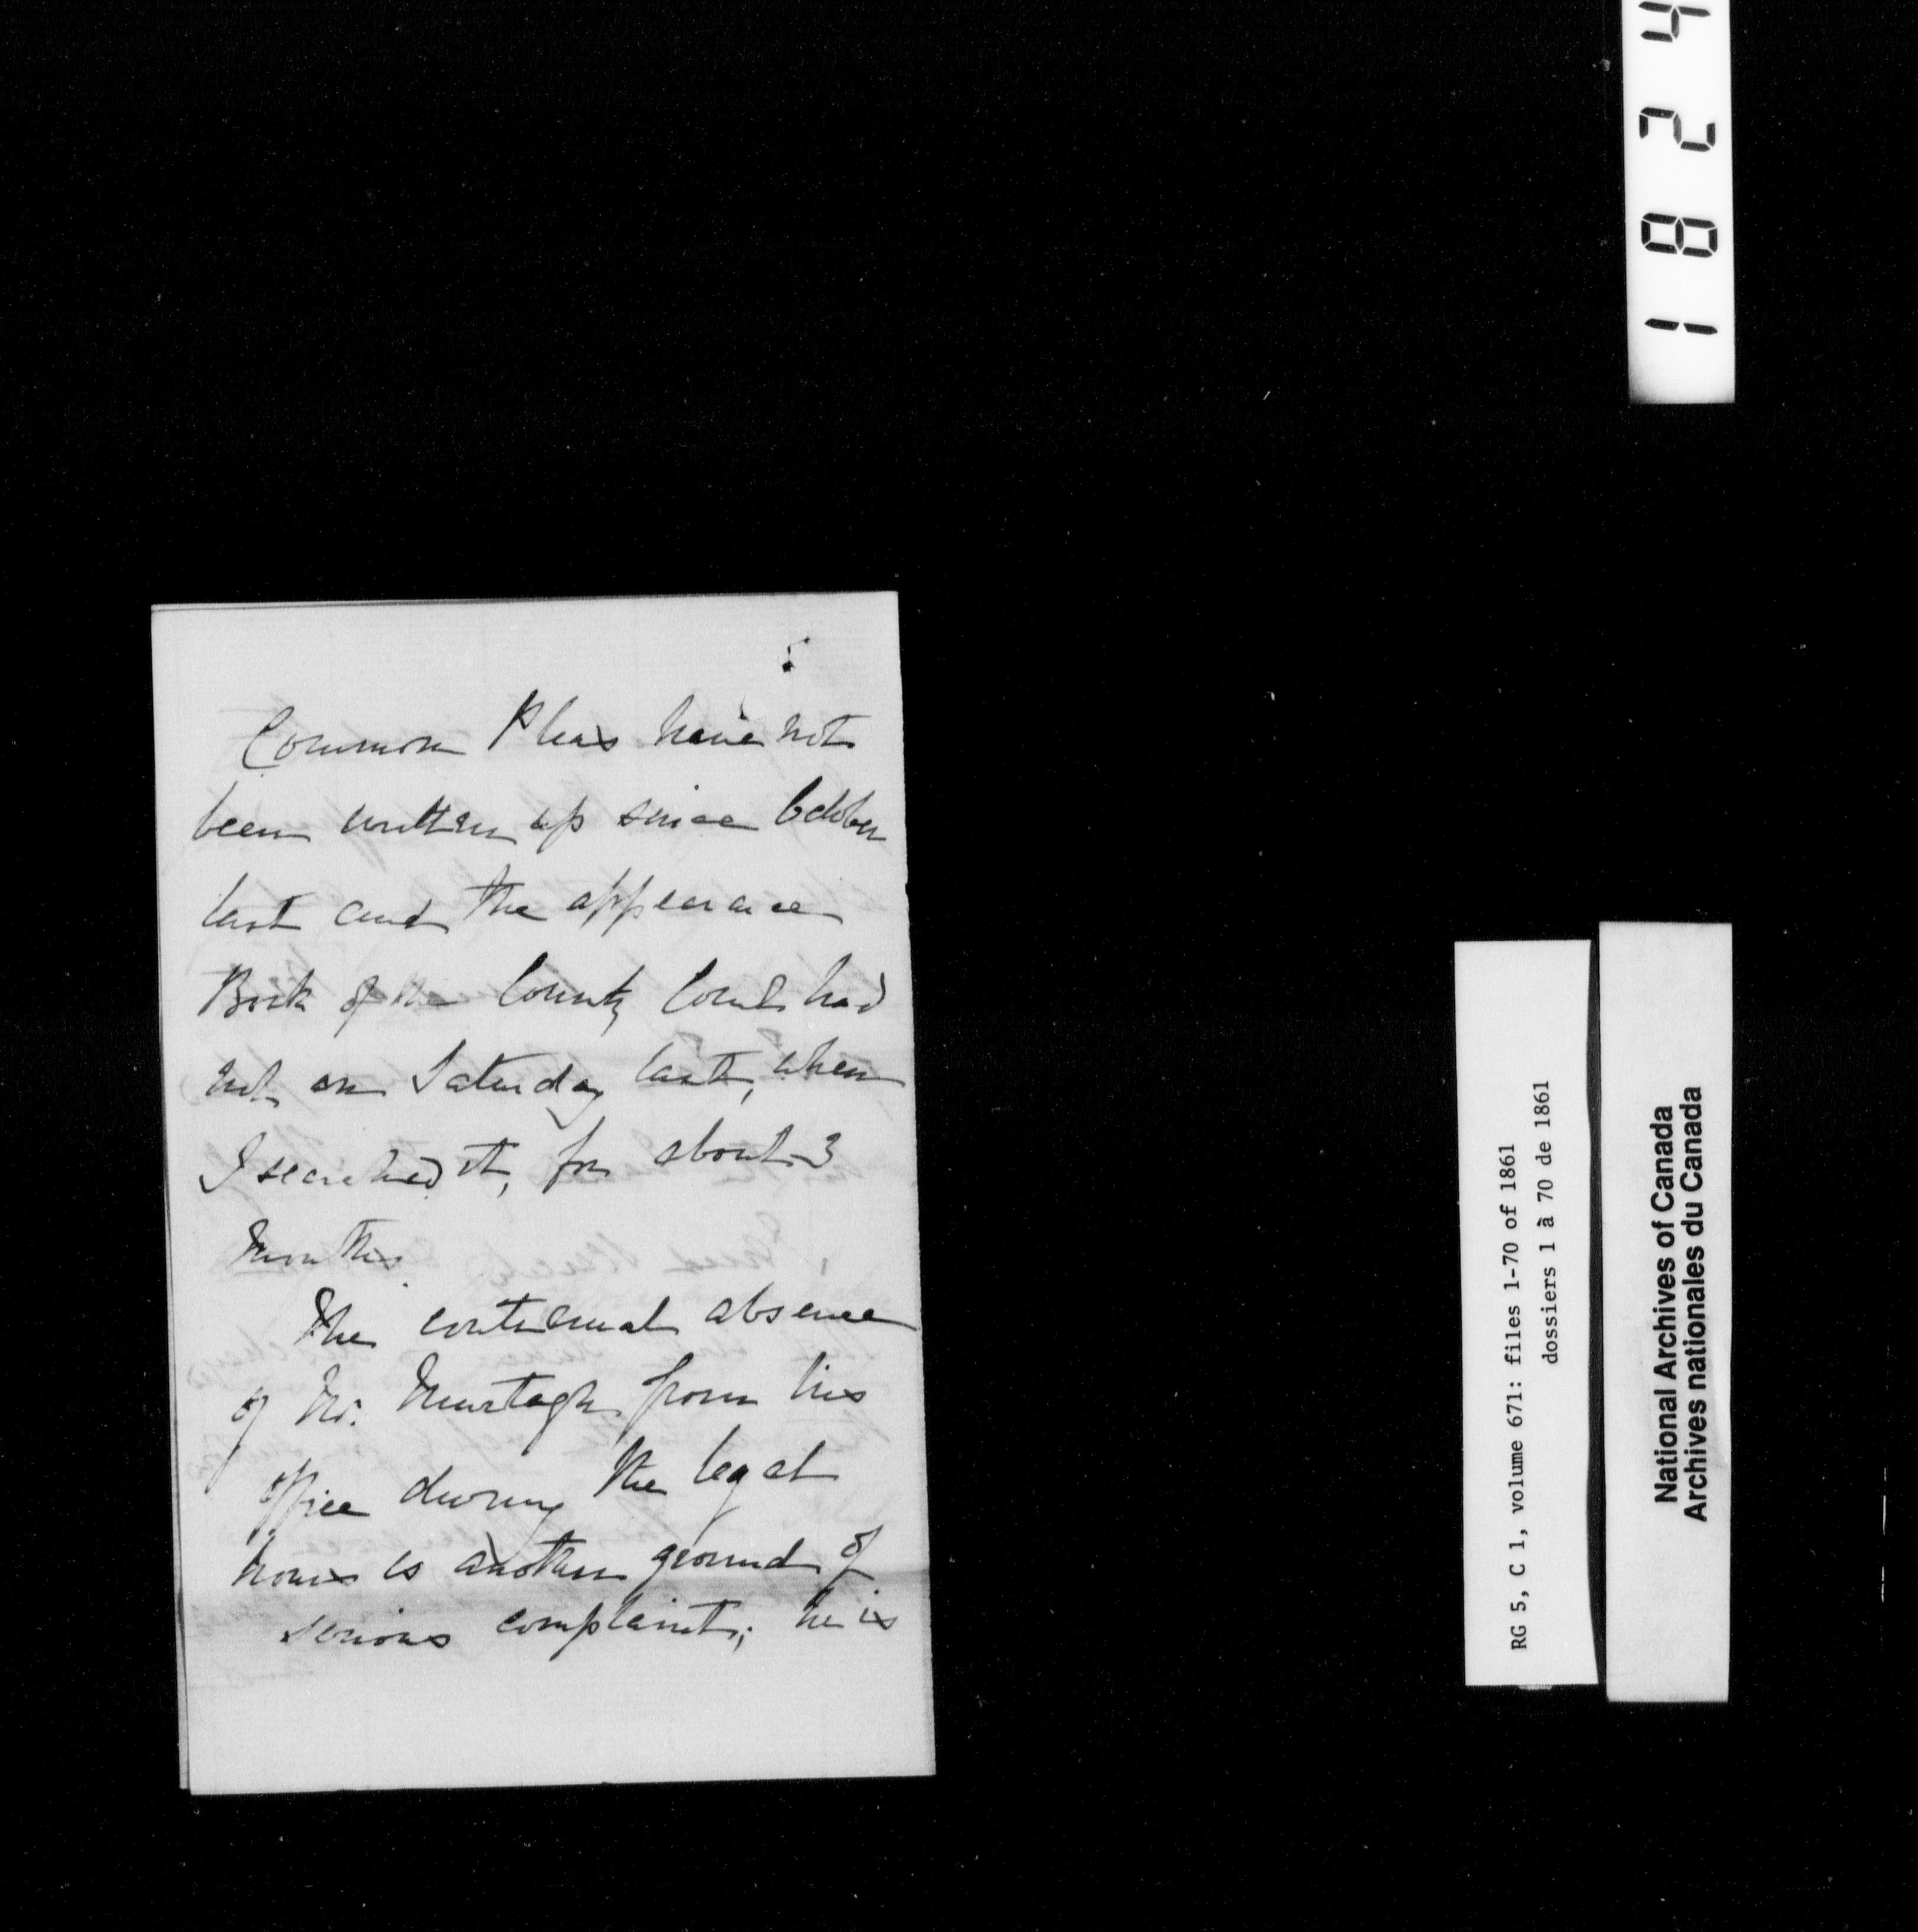 Common Pleas have not
been written up since October
last and the appearance
Book of the County Court had
not on Saturday last, when
I searched it, for about 3
months.
The continual absence
of Mr. Murtagh from his
office during the legal
hours is another ground of
serious complaint; he is
1824
RG 5, C 1, volume 671: files 1-70 of 1861
dossiers 1 à 70 de 1861
National Archives of Canada
Archives nationales du Canada